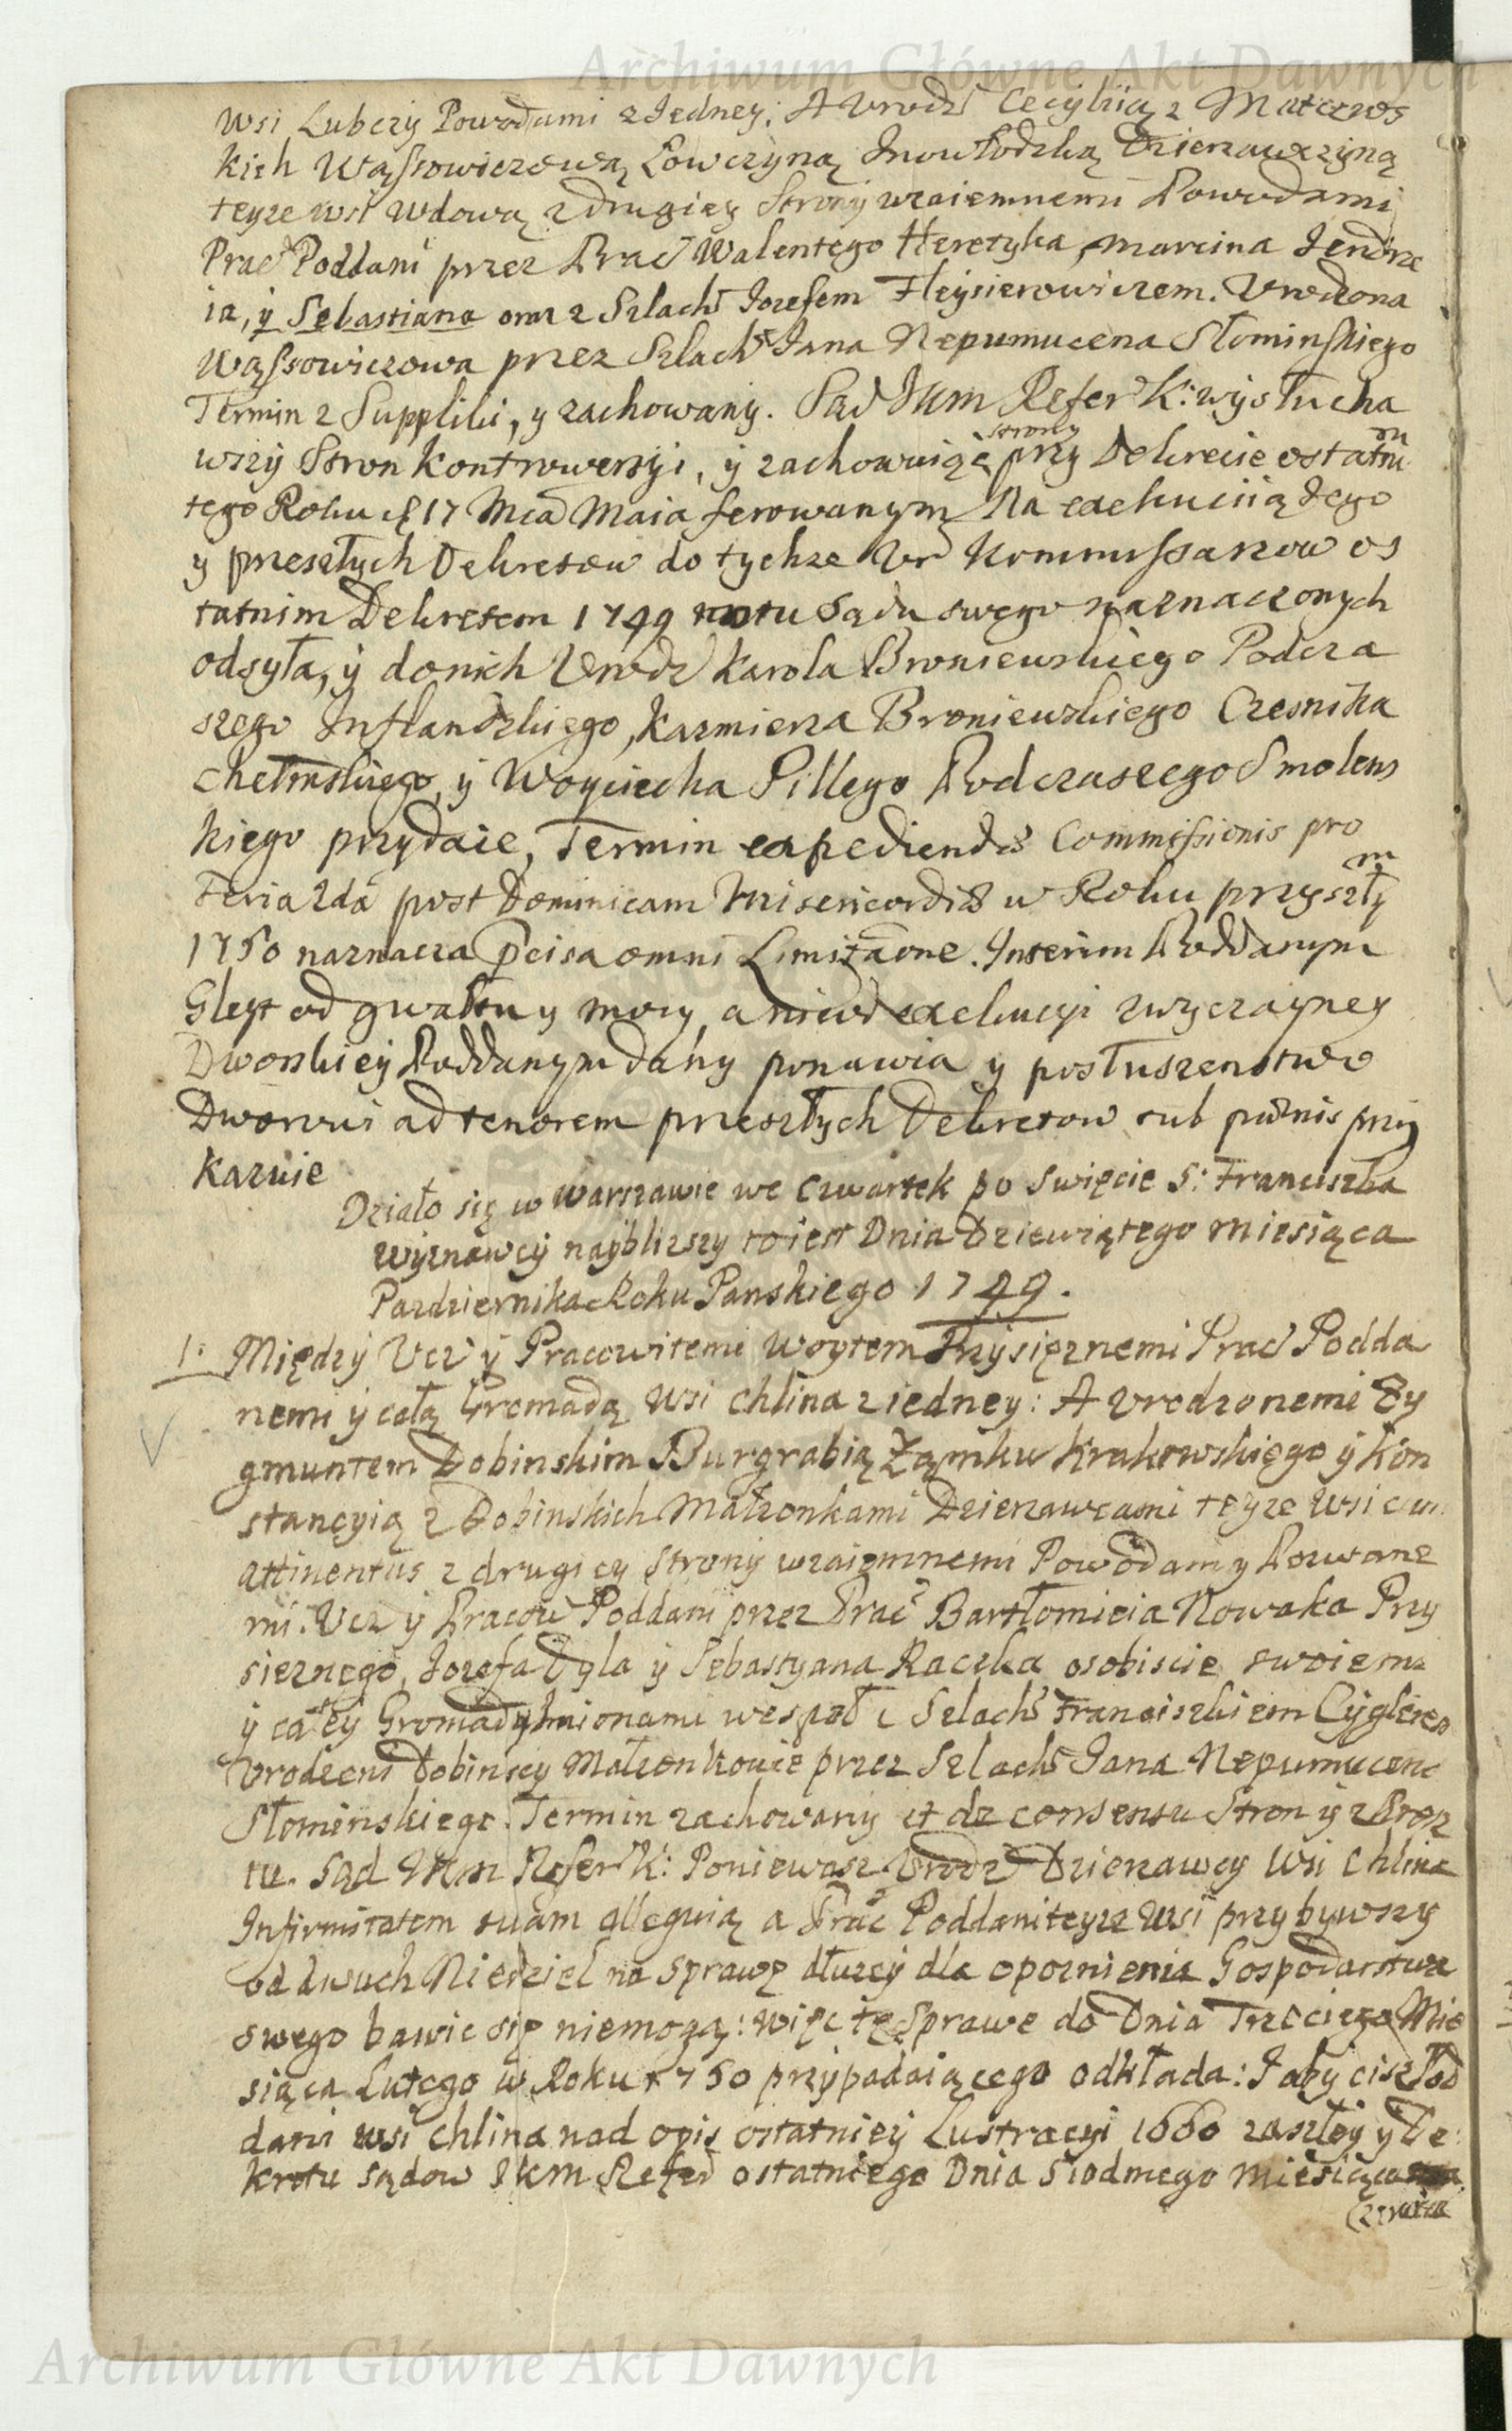 Archiwum Główne Akt Dawnych
Wsi Lubczy Powodami z Jedney: A Urodz Cecylią z Maczews
kich Wąssowiczową Łowczyną Inowłodzką Dzierzawczyną
teyze wsi wdową z drugiey Strony wzaiemnemi Powodami
Prac Poddani przez Prac Walentego Heretyka, Marcina Jendrze
ia, y Sebastiana oraz z Szlach Jozefem Fleysierowiczem. Urodzona
Wąssowiczowa przez Szlach Jana Nepumucena Słominskiego
Termin z Suppliki, y zachowany. Sąd JKM Refer K: wysłucha
wszy Stron kontrowersyi, y zachowuiąc strony przy Dekrecie ostatnim
tego Roku d 17 Mca Maia ferowanym Na exekuciią Jego
y przeszłych Dekretow do tychze Ur Kommissarzow os
tatnim Dekretem 1749 Sądu swego naznaczonych
odsyła, y do nich Urodz Karola Broniewskiego Podcza
szego Inflandzkiego, Kazmierza Broniewskiego Czesnika
Chełmskiego, y Woyciecha Pillego Podczaszego Smolens
kiego przydaie, Termin expediendæ Commissionis pro
Feria 2da post Dominicam Misericordiæ w Roku przyszłym
1750 naznacza Pcisa omni Limitaone. Interim Poddanym
Gleyt od gwałtu y mocy, a nie od exekucyi zwyczayney
Dworskiey Poddanym dany ponawia y posłuszenstwo
Dworowi ad tenorem przeszłych Dekretow sub pænis przy
kazuie
Działo się w Warszawie we Czwartek po Swięcie S: Franciszka
Wyznawcy nayblizszy to iest Dnia Dziewiątego Miesiąca
Pazdziernika Roku Panskiego 1749.
1: Między Ucz y Pracowitemi Woytem Przysięznemi Prac Podda
nemi y całą Gromadą Wsi Chlina z iedney: A Urodzonemi Zy
gmuntem Dobinskim Burgrabią Zamku Krakowskiego y Kon
stancyią z Dobinskich Małzonkami Dzierzawcami teyze Wsi cum
attinentiis z drugiey Strony wzaiemnemi Powodami y Pozwane
mi. Ucz y Pracow Poddani przez Prac Bartłomieia Nowaka Przy
sieznego, Jozefa Dyla y Sebastyana Raczka osobiscie swoiem
y całey Gromady Imionami wespoł z Szlach Franciszkiem Cyglerem
Urodzeni Dobinscy Małzonkowie przez Szlach Jana Nepumucena
Słominskiego. Termin zachowany et de consensu Stron y z
tu. Sąd JKM Refer K: Poniewasz Urodz Dzierzawcy Wsi Chlina
Infirmitatem suam alleguią a Prac Poddani teysze Wsi przybywszy
od dwuch Niedziel na Sprawę dłuzey dla opoznienia Gospodarstwa
swego bawic się niemogą: więc tę Sprawe do Dnia Trzeciego Mie
siąca Lutego w Roku 1750 przypadaiącego odkłada: I aby ciz Pod
dani wsi Chlina nad opis ostatniey Lustracyi 1660 zaszłey y De
kretu Sądow JKM Refer ostatniego Dnia Siodmego Miesiąca
Czerwca
Archiwum Główne Akt Dawnych